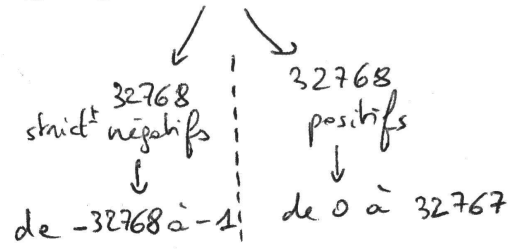 32768
strict^t négatifs
de -32768 à -1
32768
positifs
de 0 à 32767